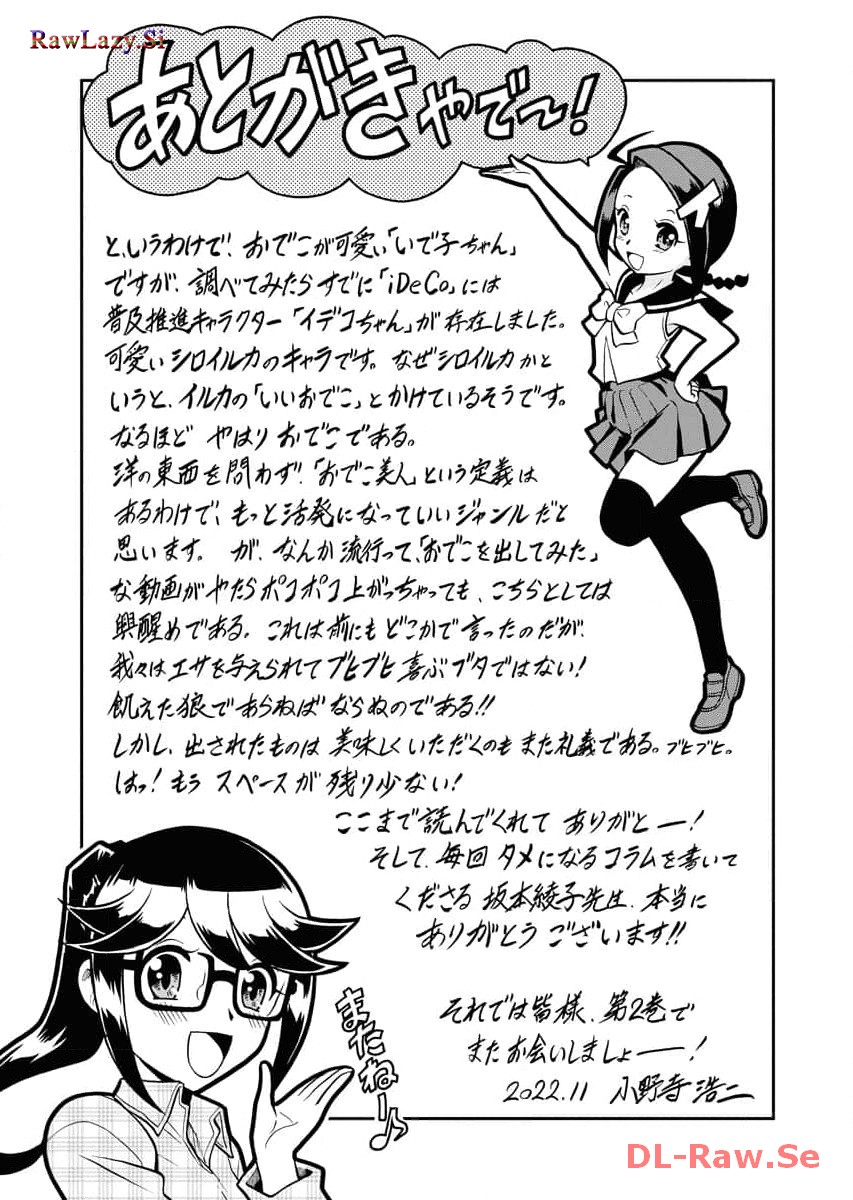 RawLazy.Si
あとがきやで〜!
と、いうわけで、おでこが可愛い「いで子ちゃん」
ですが、調べてみたらすでに「iDeCo」には
普及推進キャラクター「イデコちゃん」が存在しました。
可愛いシロイルカのキャラです。なぜシロイルカかと
いうと、イルカの「いいおでこ」とかけているそうです。
なるほど やはりおでこである。
洋の東西を問わず、「おでこ美人」という定義は
あるわけで、もっと活発になっていいジャンルだと
思います。が、なんか流行って、「おでこを出してみた」
な動画がやたらポコポコ上がっちゃっても、こちらとしては
興醒めである。これは前にもどこかで言ったのだが、
我々はエサを与えられてブヒブヒ喜ぶブタではない!
飢えた狼であらねばならぬのである!!
しかし、出されたものは美味しくいただくのもまた礼義である。ブヒブヒ。
はっ!もうスペースが残り少ない!
ここまで読んでくれてありがとー!
そして、毎回タメになるコラムを書いて
くださる坂本綾子先生、本当に
ありがとうございます!!
それでは皆様、第2巻で
またお会いしましょー!
2022.11 小野寺浩二
またねー♪
イ
DL-Raw.Se